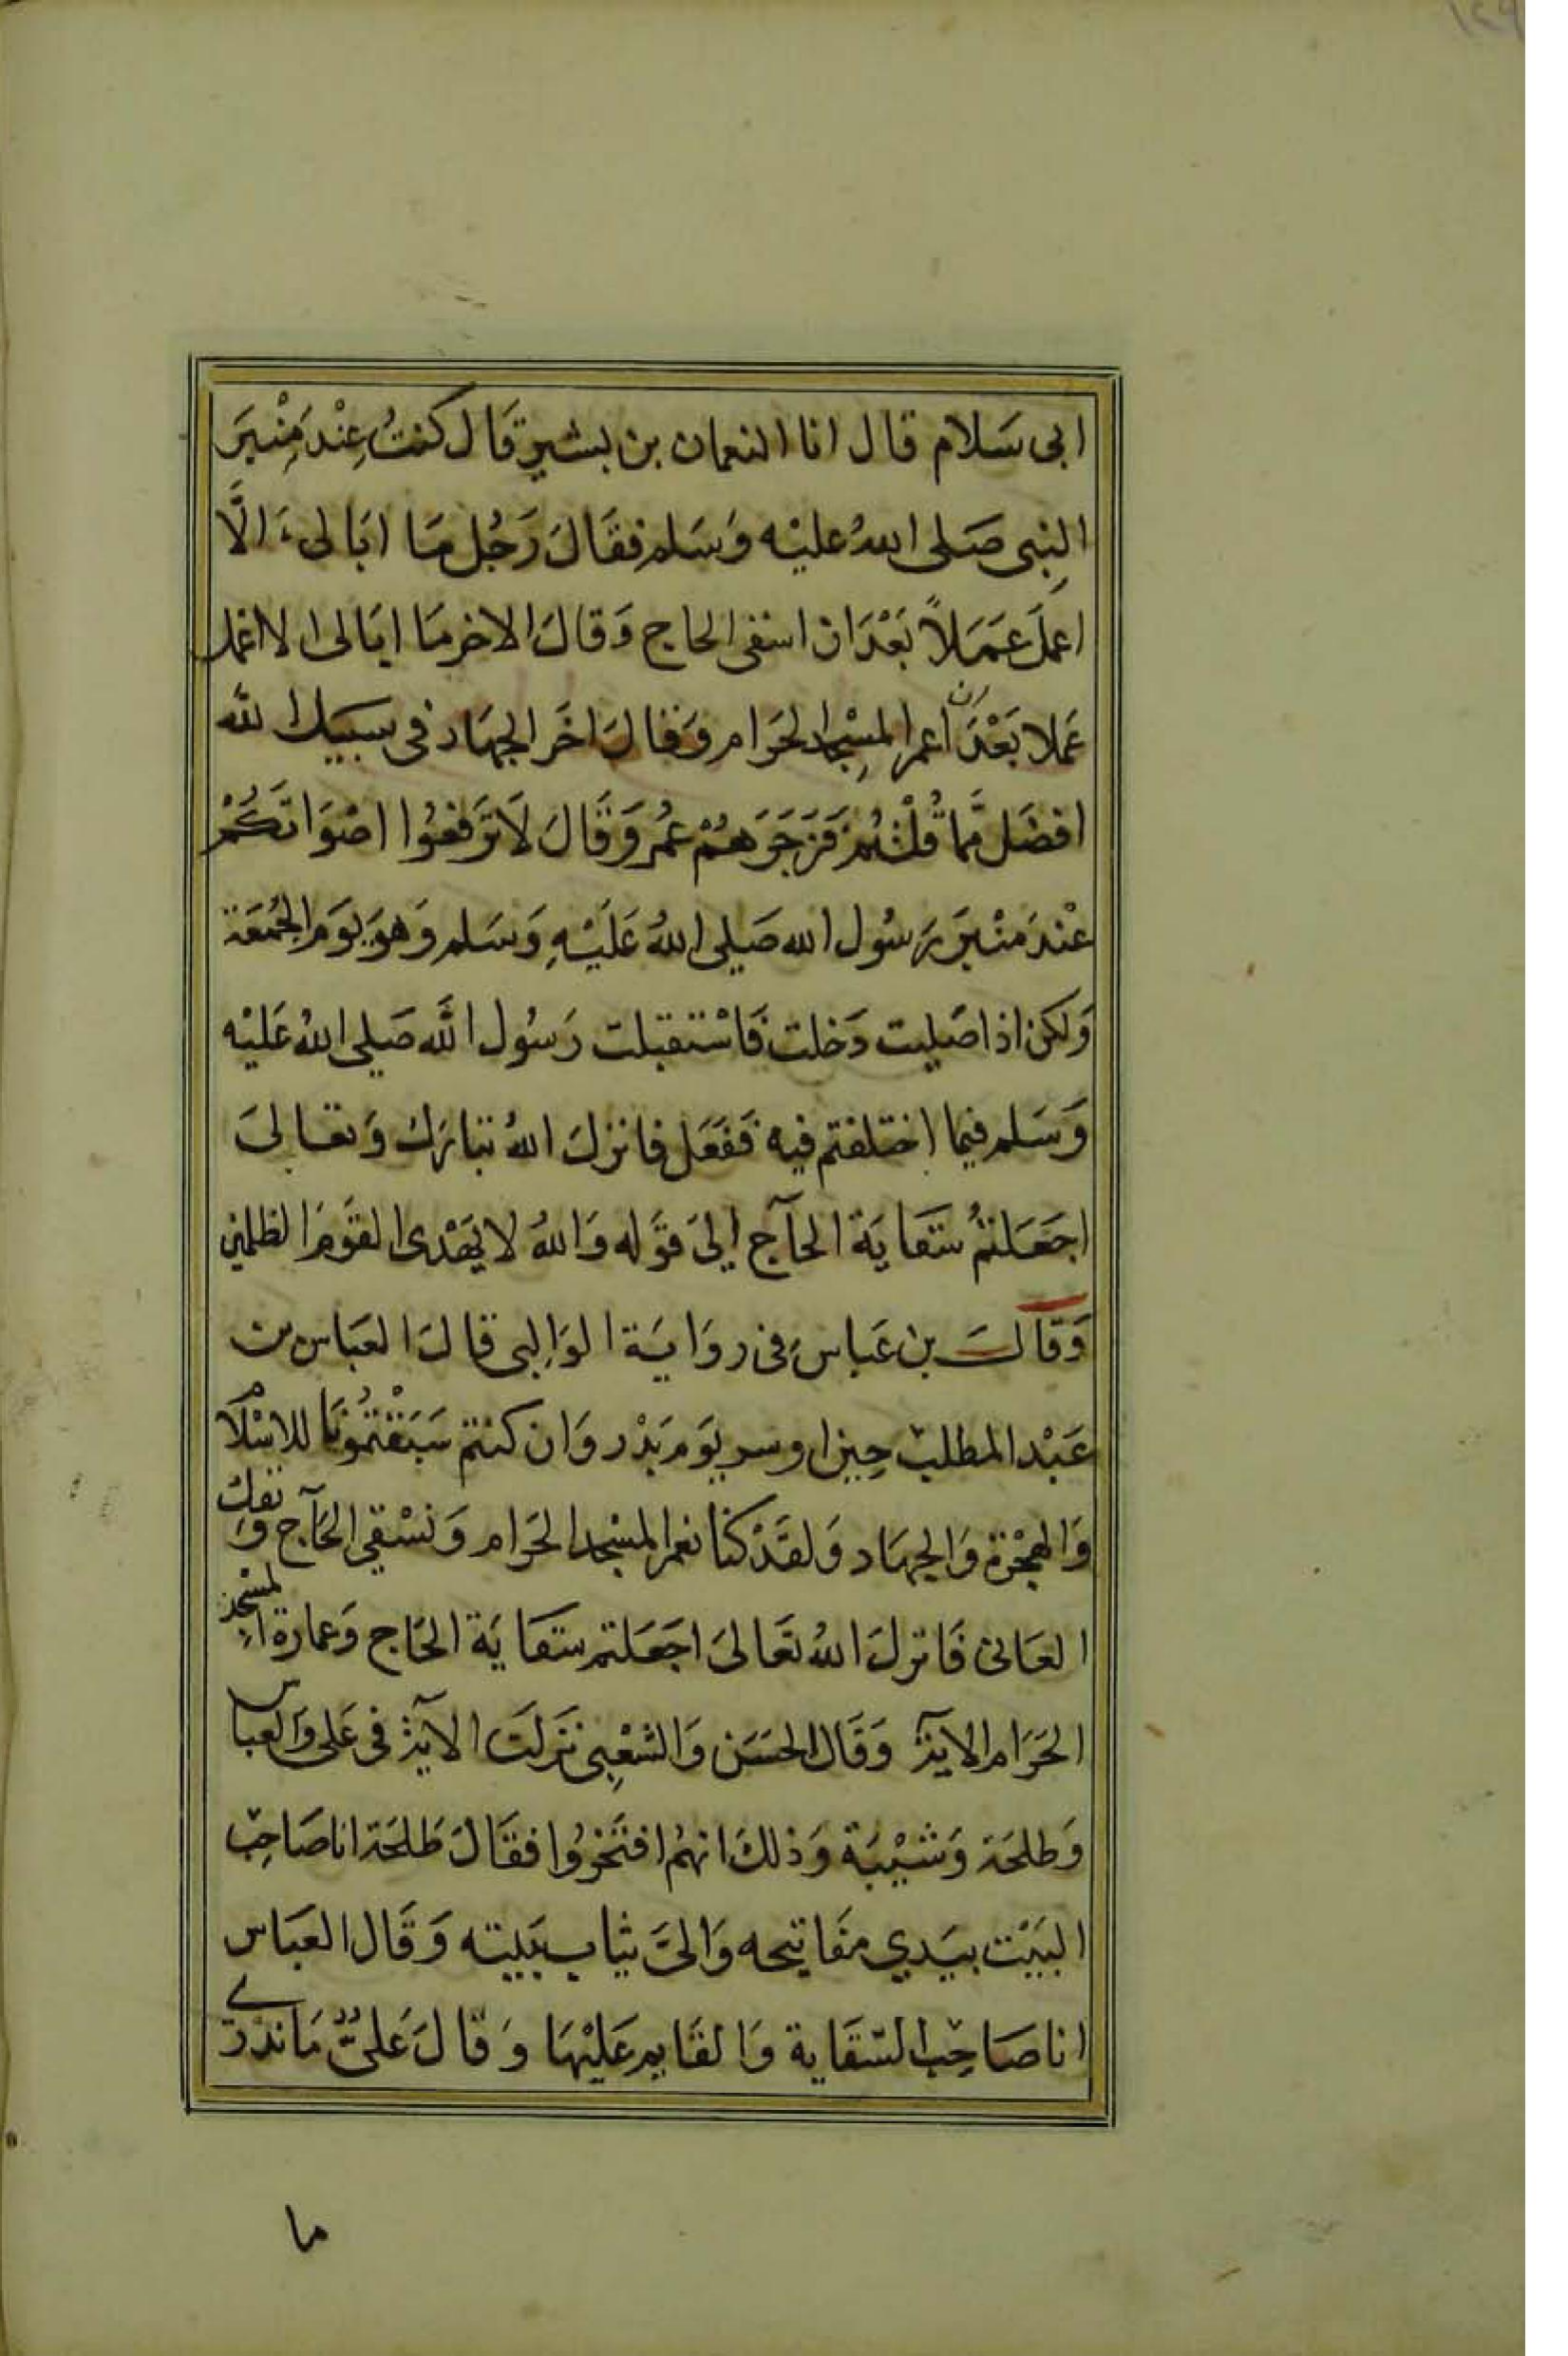 ابى سَلام قال انا النعمان بن بشير قَال كنتُ عِنْدَ مِنْبَرَ
النِبى صَلى اللهُ عليْه وَسَلم فقَالَ رَجُل مَا ابَالى اَلَّا
اعمَلَ عَمَلاً بَعْدَ ان اسقى الحاج وَقالَ الاخر مَا ابَالى الا اعمل
عَملا بَعْدَ ان اعمر المسْجِد الحَرَام وَقالَ اخَر الجهَاد فى سبيل الله
افضَل مّما قُلْتُم فَزَجَرَهُمْ عُمر وَقَالَ لَا تَرفعُوا اصْوَاتَكُمْ
عْندَ منْبَر رَسُول الله صَلى اللهُ عَلَيْهِ وَسَلم وَهوَ يَوم الجُمُعَة
وَلكن اذا صَليت دَخلت فَاسْتفتيت رَسُول الله صَلى اللهُ عَليْه
وَسَلم فيما اختلفتم فيه فَفعَل فانزلَ اللهُ تبَارَك وَتعَالىَ
اجَعَلتمُ سَقايَة الحآج الىَ قوَله وَاللهُ لا يَهْدى القَوَم الظلمين
وَقالَ بن عَباس فى روَايَة الوَالِبى قالَ العَباس بن
عَبْد المطلب حِين اوسر يَوم بَدْر وَان كنتم سَبَقْتمُونَا للاسْلَام
وَالهجْرَة وَالجهَاد وَلقَدْ كنا نعمر المسْجد الحَرَام وَنسْقي الحَآج وَنفك
العَانى فَانزلَ اللهُ تعَالىَ اجَعَلتم سَقايَة الحَاج وَعمارة المسْجد
الحَرَام الايَة وَقَال الحَسَن وَالشعْبِى نَزلَت الآية فى عَلى وَالعبَاس
وَطلحَة وَشيْبَة وَذلكَ انهُم افتَخرُوا فقَالَ طَلحَة انا صَاحِب
البَيْت بيَدي مفَاتيحه وَالىَّ ثيَاب بَيته وَقَال العَبَاس
انا صَاحِب السّقَاية وَالقَايم عَليْهَا وَقالَ عَلىٌّ مَا ندْرى
ما